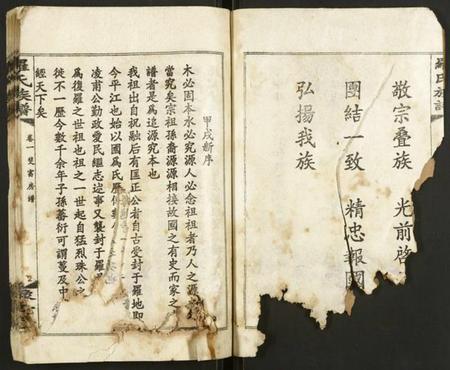 羅氏族譜
敬宗疊族 光前啓
團結一致 精忠報國
弘揚我族
甲戌新序
木必固本水必究源人必念祖祖者乃人之源
當究矣宗祖孫裔源源相接故國之有史而家之
譜者是為追源究本也
我祖出自祝融后有匡正公者自古受封于羅地即
今平江也始以國為氏歷
凌甫公勤政愛民繼志述事又襲封于羅
為復羅之世祖也祖之一世起自猛烈珠公之
從不一歷今數千余年子孫蕃衍可謂蔓及中
經天下矣
羅氏族譜
卷一